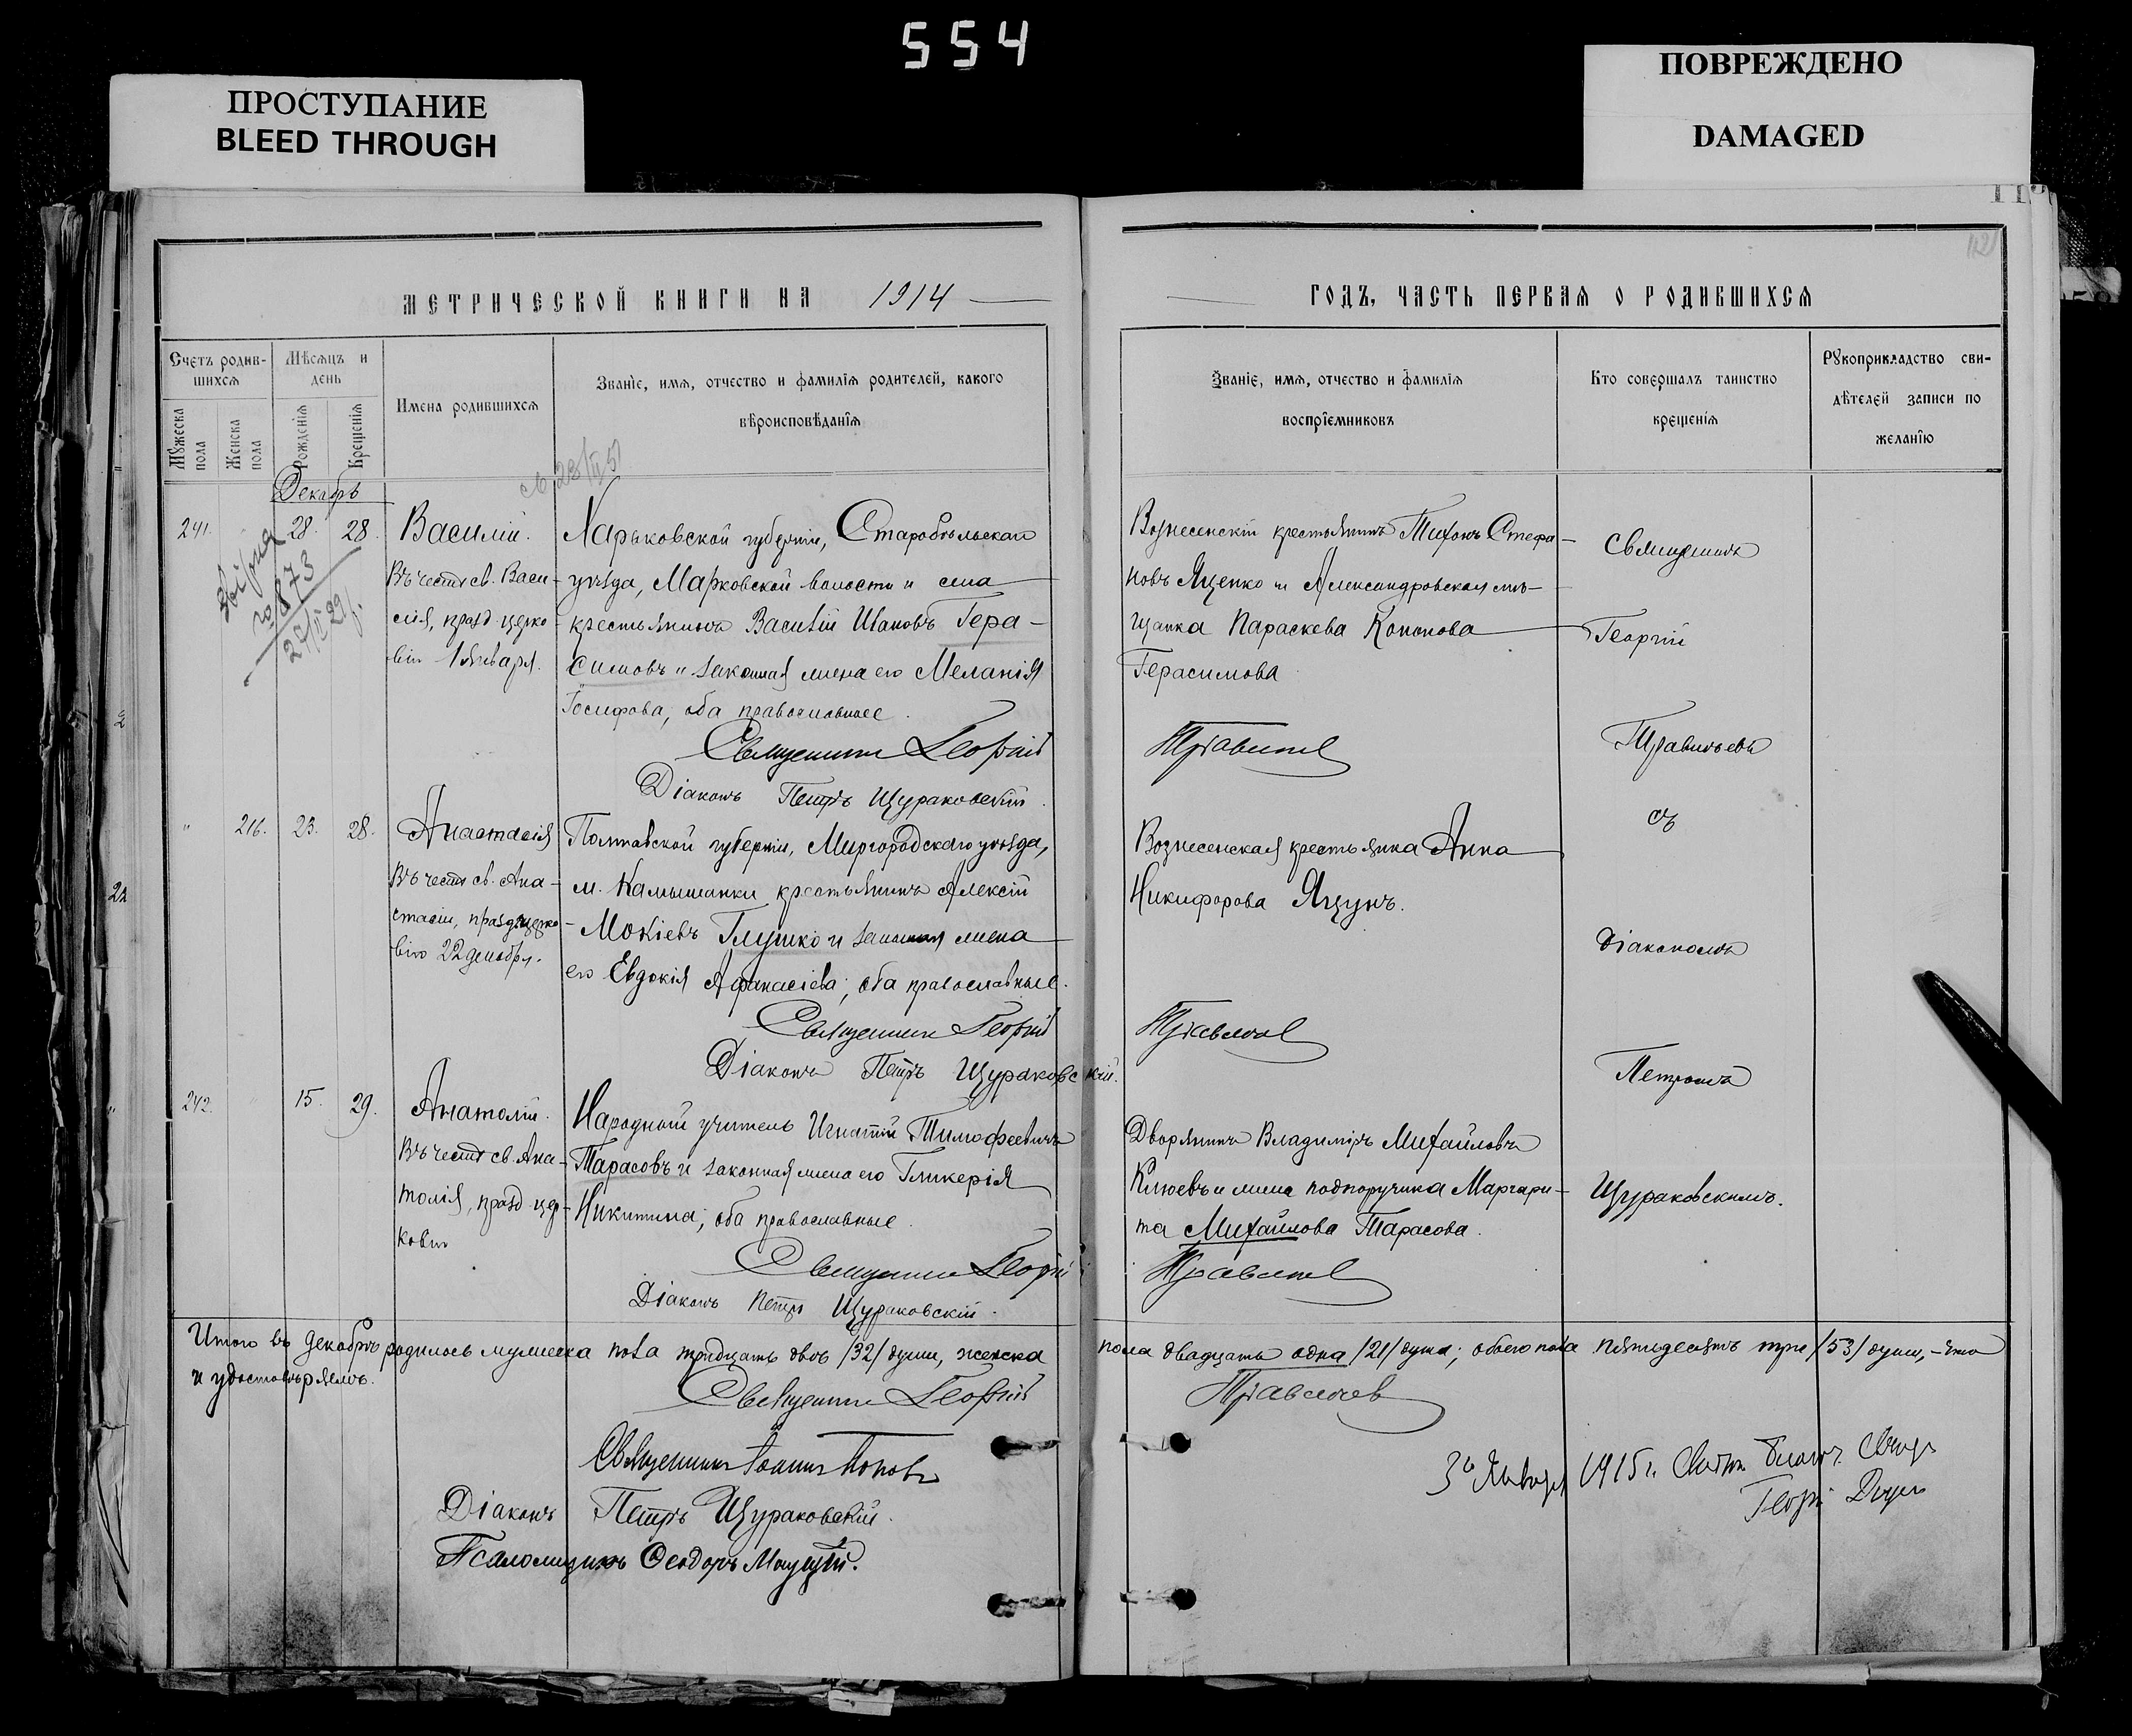 554
ПРОСТУПАНИЕ
BLEED THROUGH
ПОВРЕЖДЕНО
DAMAGED
МЕТРИЧЕСКОЙ КНИГИ НА 1914
Счетъ родив-
шихся
Мужеска пола
Женска пола
Мѣсяцъ и
день
Рожденія
Крещенія
Имена родившихся
Званіе, имя, отчество и фамилія родителей, какого
вѣроисповѣданія
Декабрь
241.
28.
28.
Василій.
Въ честь св. Васи-
лія, празд. церко-
вію 1 Января.
№ 873
Харьковской губерніи, Старобѣльскаго
уѣзда, Марковской волости и села
крестьянинъ Василій Ивановъ Гера-
симовъ и законная жена его Меланія
Іосифова, оба православные.
Священникъ Георгій
Діаконъ Петръ Щураковскій.
"
216.
23.
28.
Анастасія
Въ честь св. Ана-
стасіи, празд. церко-
вію 22 декабря.
Полтавской губерніи, Миргородскаго уѣзда,
м. Камышанки крестьянинъ Алексій
Мокіевъ Глушко и законная жена
его Евдокія Афанасіева, оба православные.
Священникъ Георгій
Діаконъ Петръ Щураковскій.
242.
15.
29.
Анатолій.
Въ честь св. Ана-
толія, празд. цер-
ковію
Народный учитель Игнатій Тимофеевичъ
Тарасовъ и законная жена его Гликерія
Никитина, оба православные.
Священникъ Георгій
Діаконъ Петръ Щураковскій.
Итого въ декабрѣ родилось мужеска пола тридцать двѣ /32/ души, женска
и удостовѣряемъ.
Священникъ Георгій
Священникъ Іоаннъ Поповъ
Діаконъ Петръ Щураковскій.
Псаломщикъ Ѳеодоръ
ГОДЪ, ЧАСТЬ ПЕРВАЯ О РОДИВШИХСЯ
Званіе, имя, отчество и фамилія
воспріемниковъ
Кто совершалъ таинство
крещенія
Рукоприкладство сви-
дѣтелей записи по
желанію
Вознесенскій крестьянинъ Тихонъ Стефа-
новъ Яценко и Александровская мѣ-
щанка Параскева Кононова
Герасимова
Правиловъ
Вознесенская крестьянка Анна
Никифорова Яцунъ.
Дворянинъ Владиміръ Михайловъ
Клюевъ и жена подпоручика Маргари-
та Михайлова Тарасова.
Священникъ
Георгій
съ
Діакономъ
Петромъ
Щураковскимъ.
пола двадцать одна /21/ душа; обоего пола пятьдесятъ три /53/ души, - что
3 Января 1915 г.